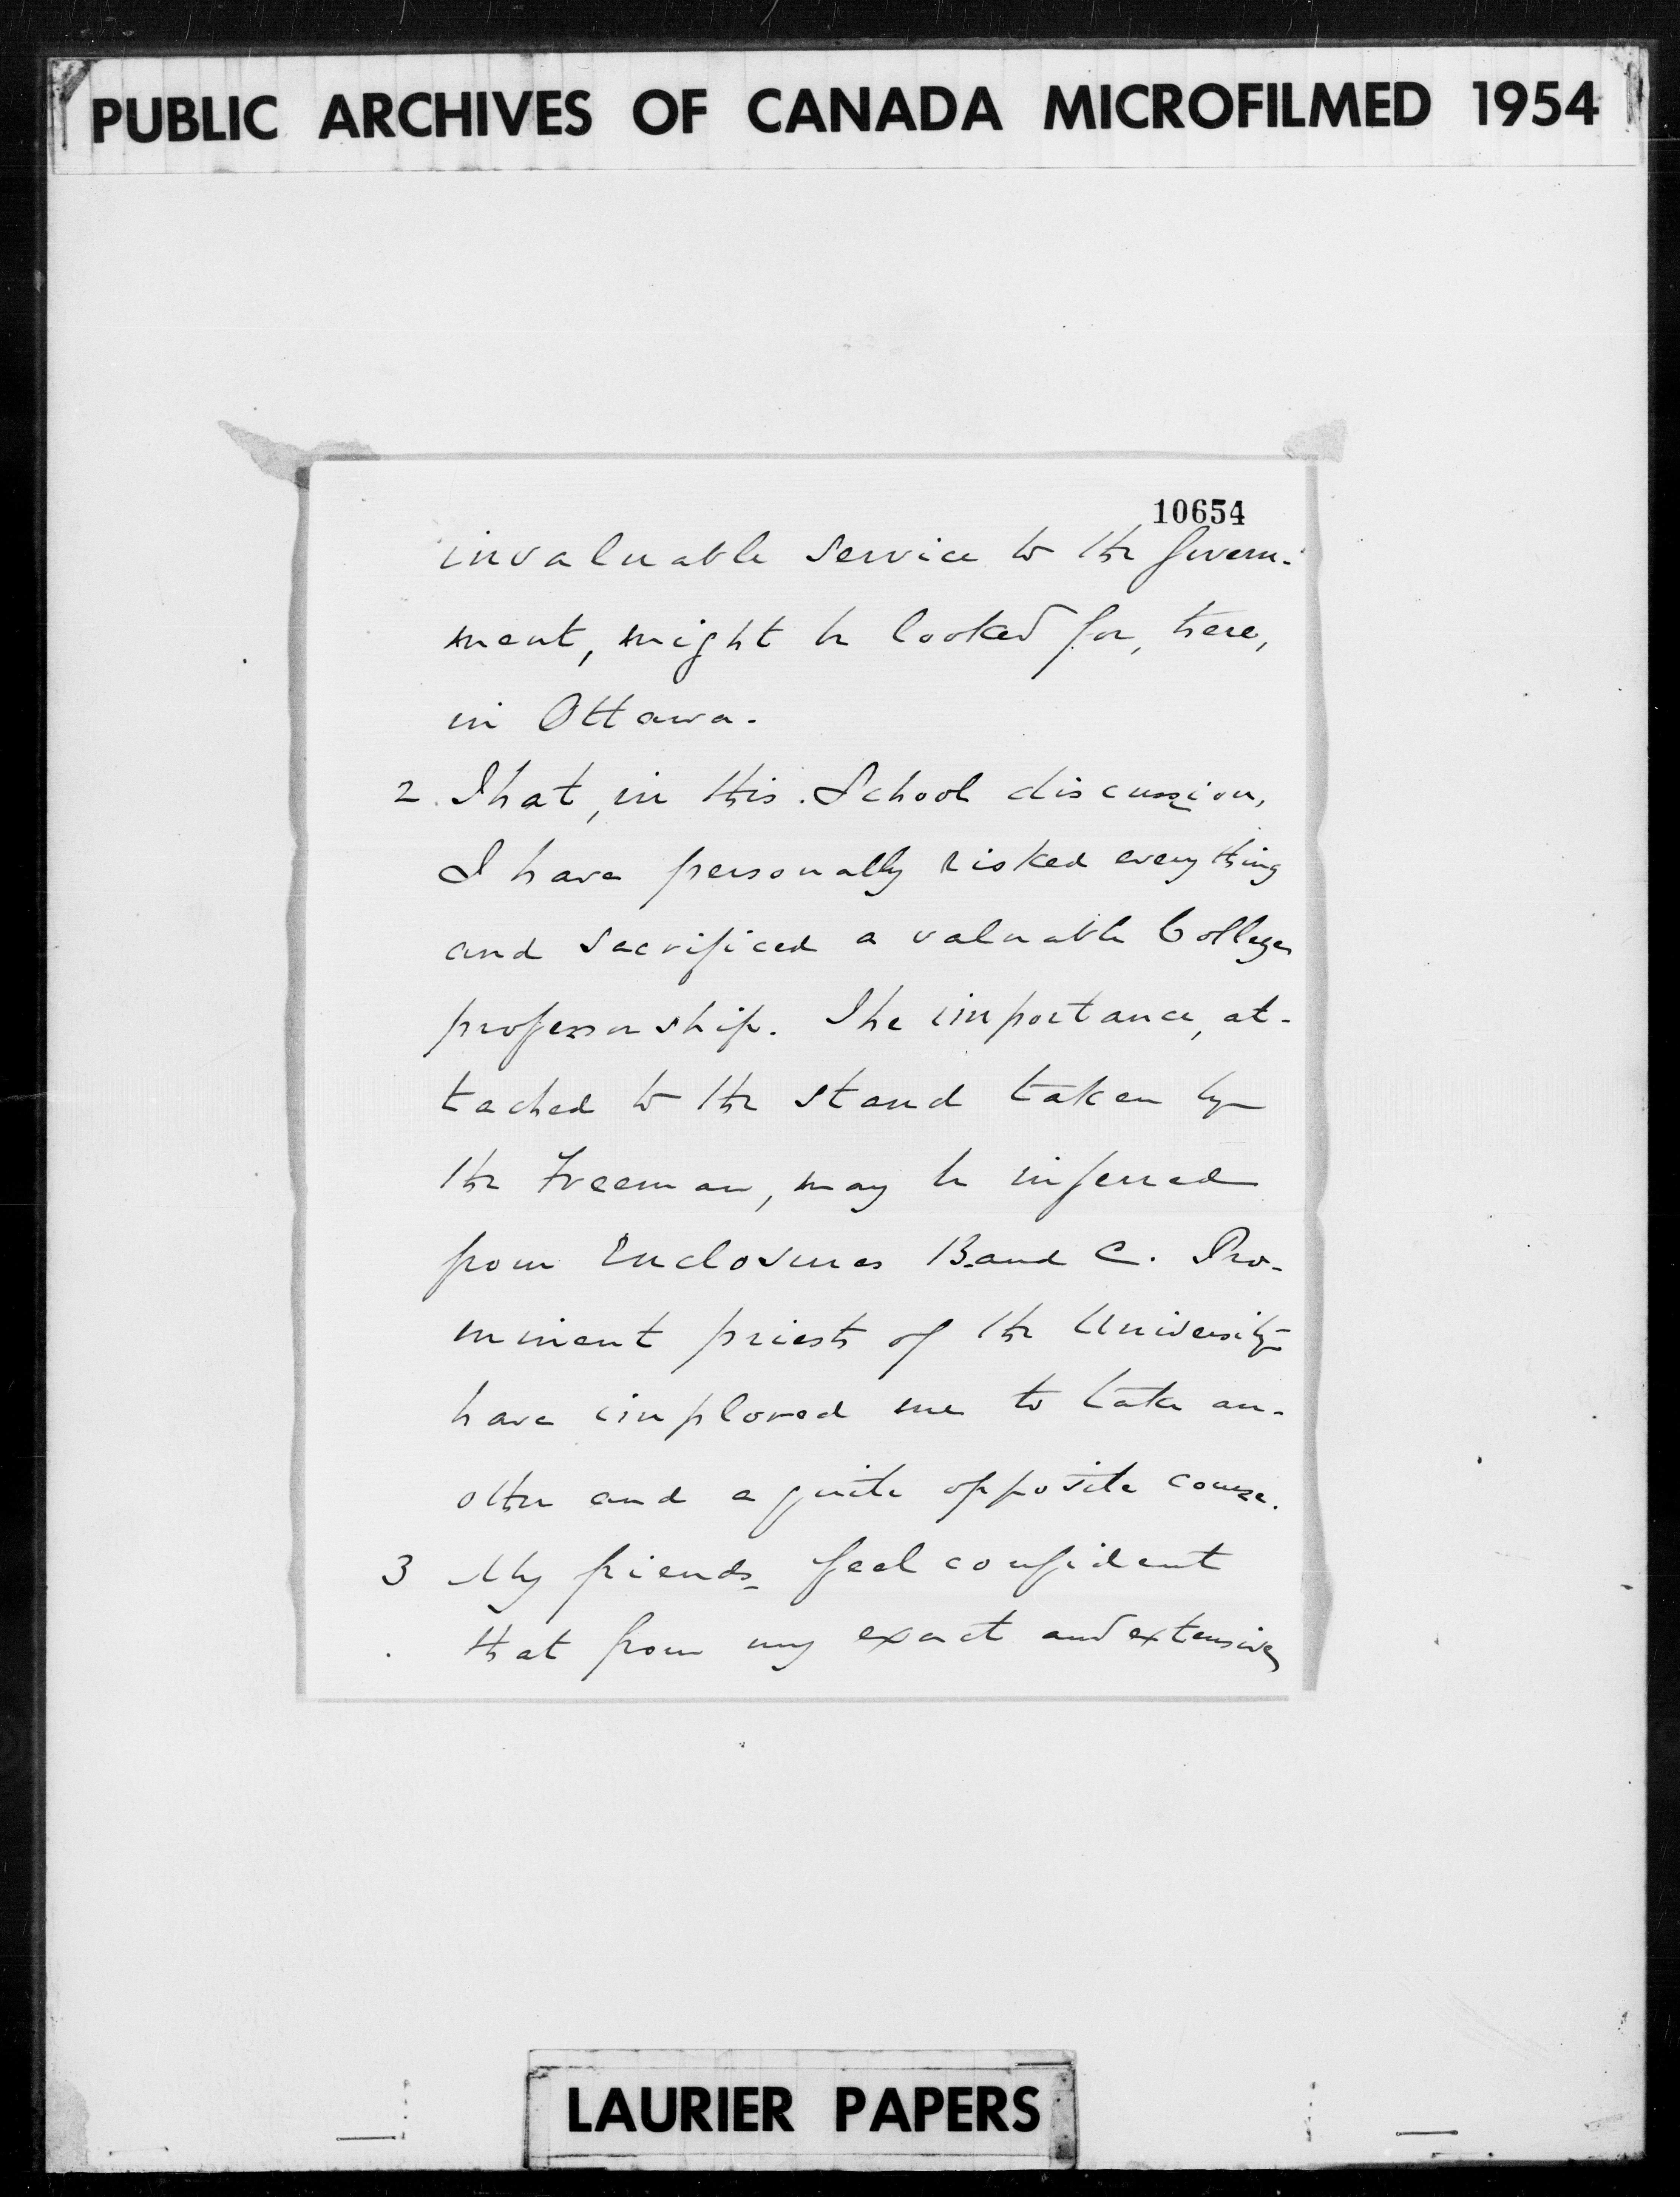 PUBLIC ARCHIVES OF CANADA MICROFILMED 1954
10654
invaluable service to the Govern-
ment, might be looked for, here,
in Ottawa.
2. That, in this School discussion,
I have personally risked everything
and sacrificed a valuable College
professorship. The importance, at-
tached to the stand taken by
the Freeman, may be inferred
from Enclosures B and C. Pro-
minent priests of the University
have implored me to take an-
other and a quite opposite course.
3 My friends feel confident
that from my exact and extensive
LAURIER PAPERS